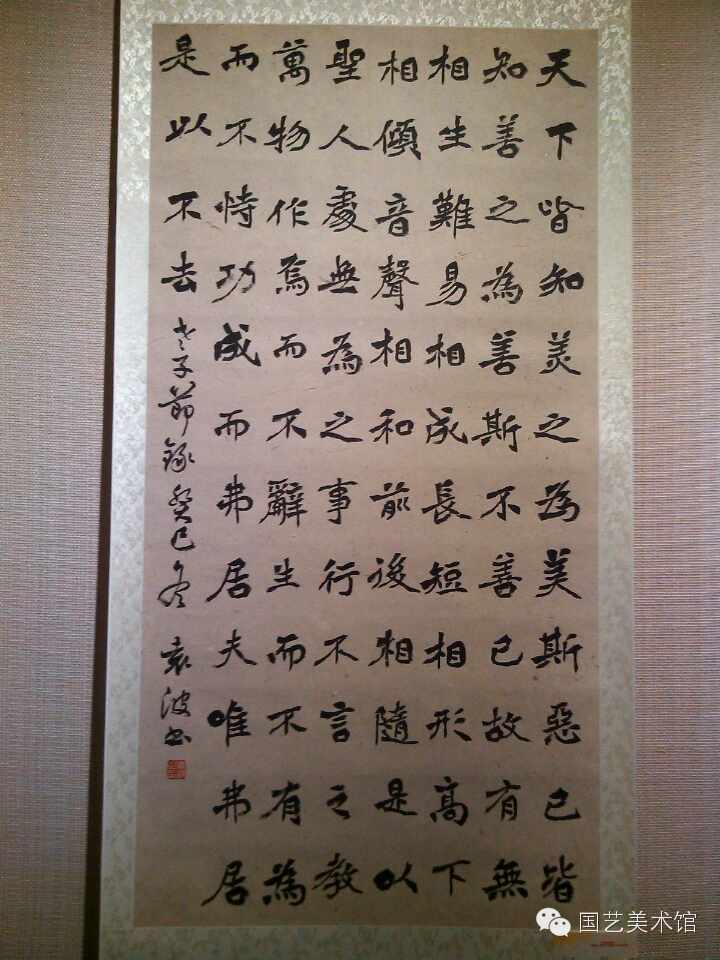 天下皆知美之為美斯惡已皆
知善之為善斯不善已故有無
相生難易相成長短相形高下
相傾音聲相和前後相隨是以
聖人處無為之事行不言之教
萬物作焉而不辭生而不有為
而不恃功成而弗居夫唯弗居
是以不去 老子節錄 癸巳冬 袁波書
国艺美术馆